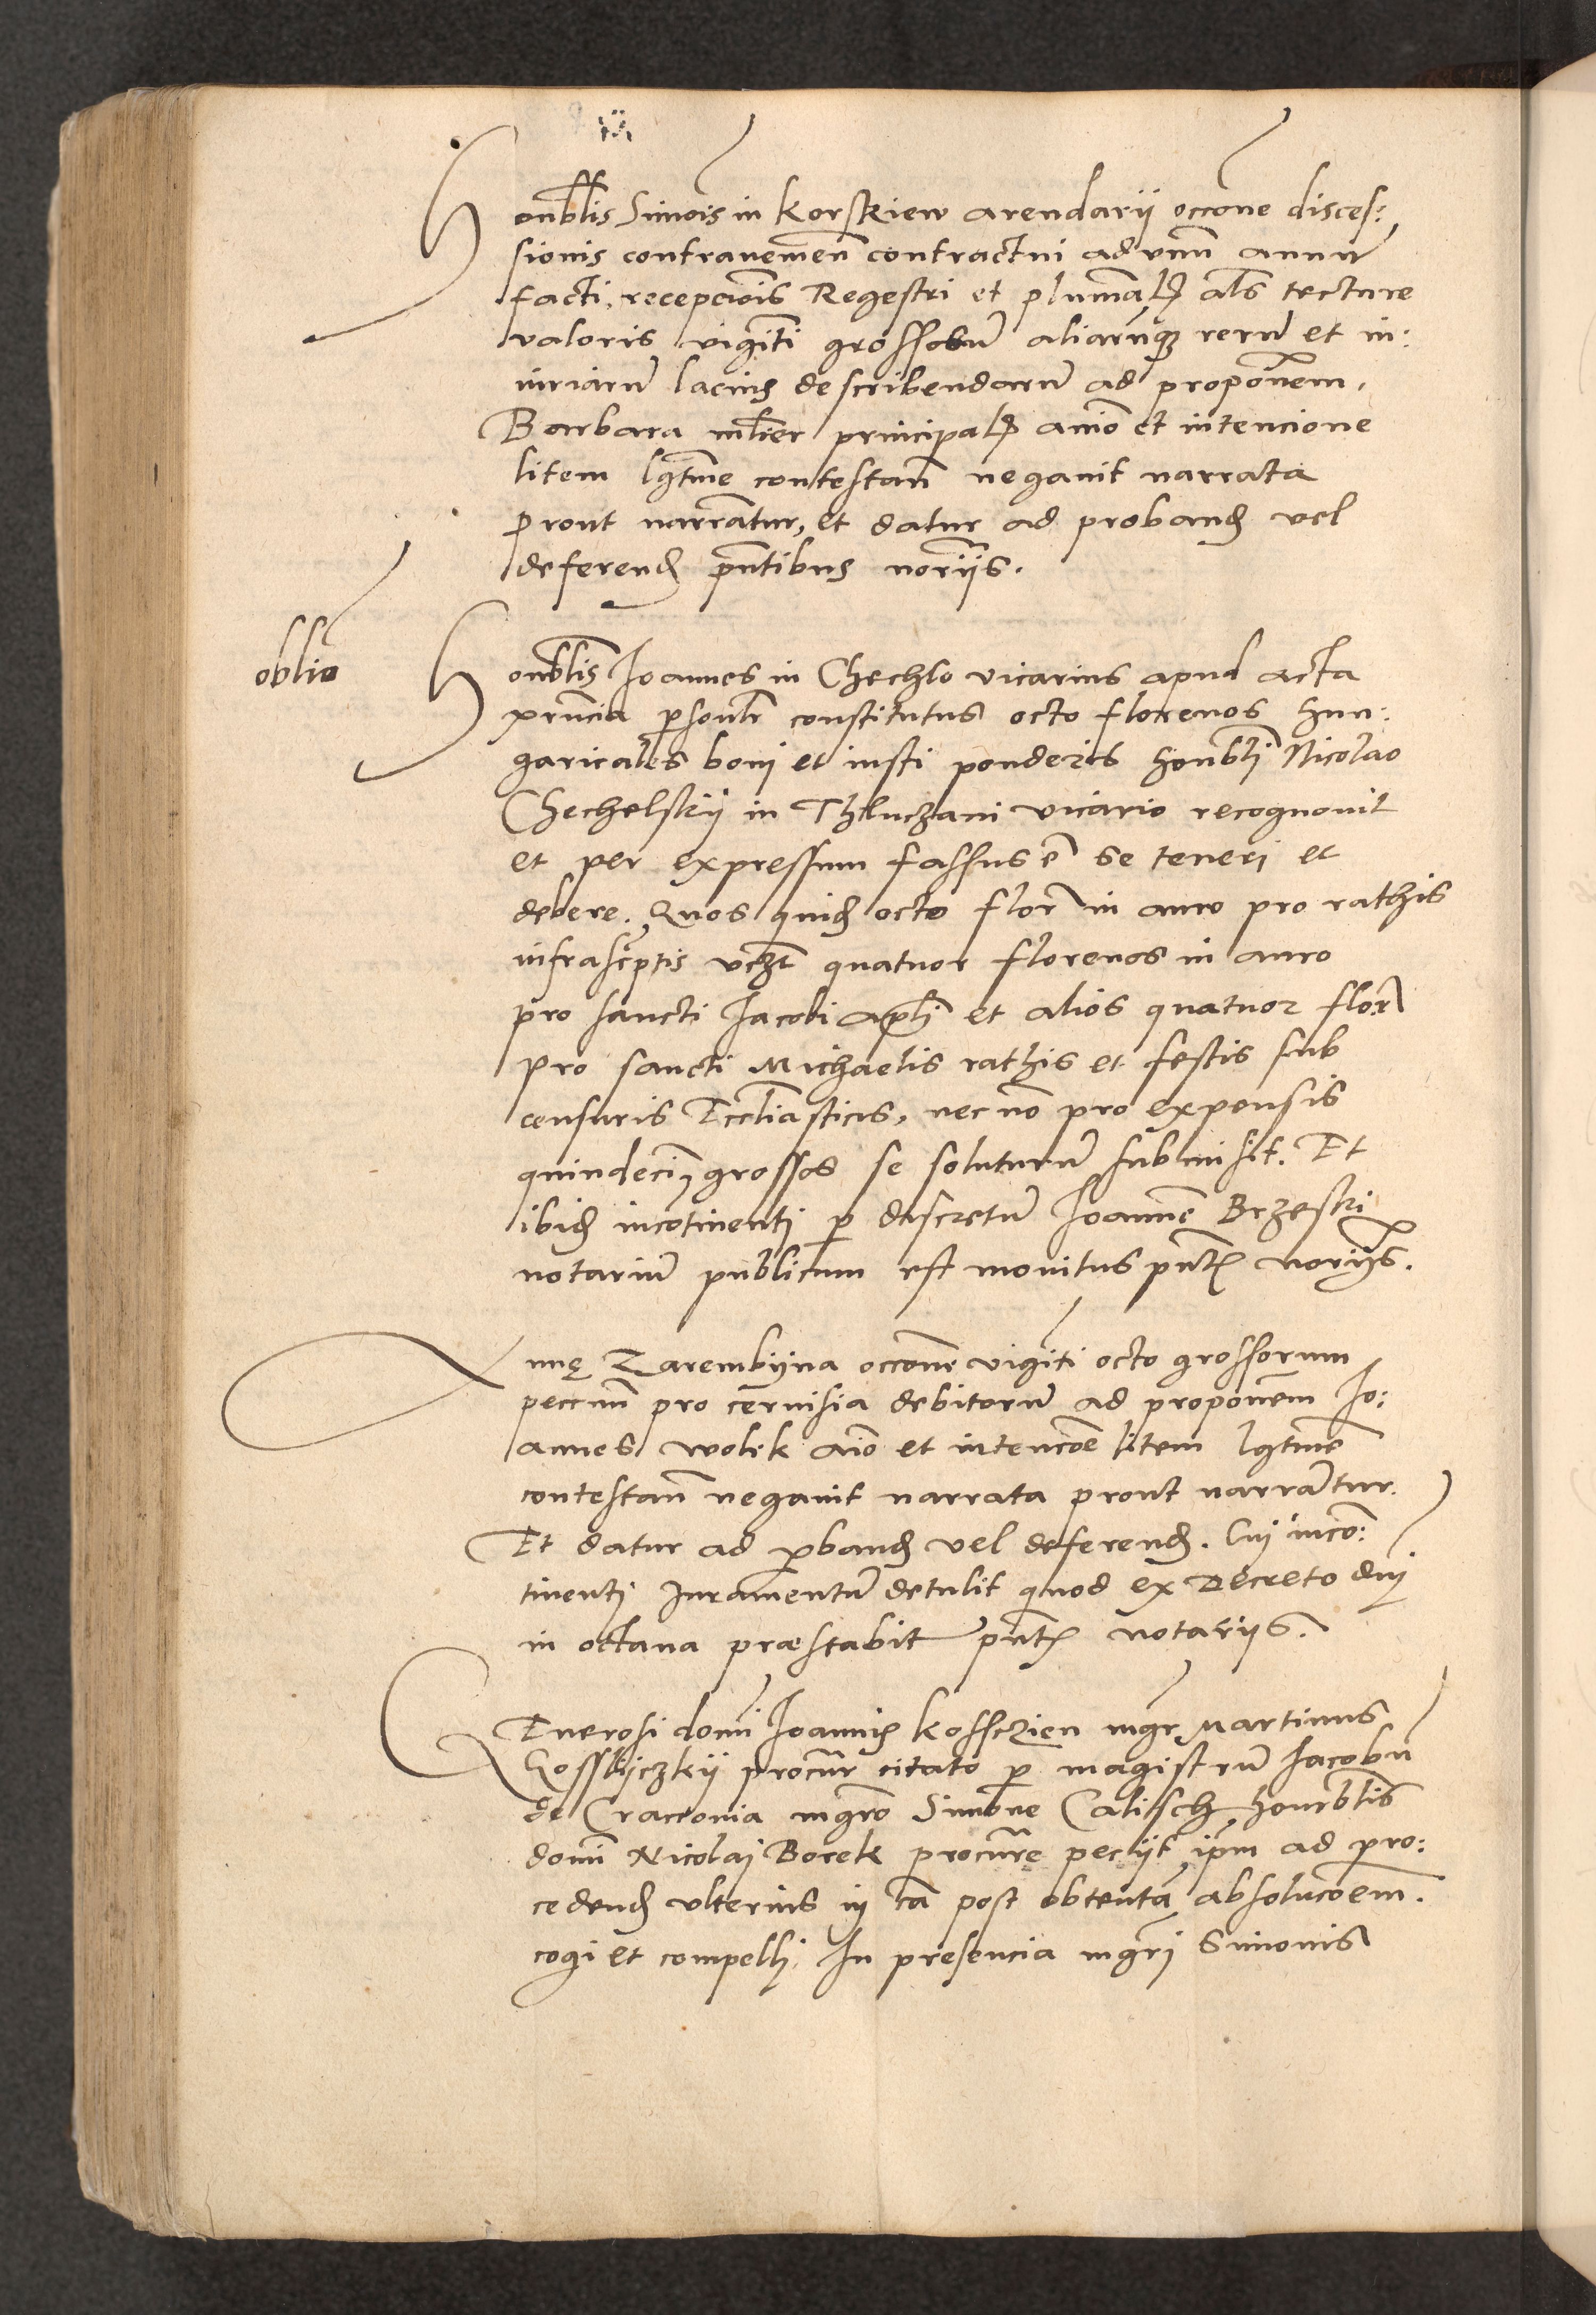 Honblis Simois in Korskiew arendarij occone disces:
sionis contravenien contractui ad vnū annū
facti, recepcois Regestri et plumal als tecture
valoris viginti grossorū aliarūq rerū et in:
iuriarū lacius describendarū ad proponem.
Barbara mlier principal aīo et intencione
litem lgtme contestan negauit narrata
prout narrātur, et datur ad proband vel
deferend pntibus norijs.
oblio
Honblis Joannes in Chechlo vicarius apud acta
prncia psonlr constitutus octo florenos hun:
garicales boni et iusti ponderis honbli Nicolao
Chechelskij in Thluczani vicario recognouit
et per expressum fassus ē se teneri et
debere. Quos quid octo flor in auro pro rathis
infrascptis vczt quatuor florenos in auro
pro sancti Jacobi apli et alios quatuor flor
pro sancti Michaelis rathis et festis sub
censuris Eccliasticis, nec nō pro expensis
quindecim grossos se soluturū submisit. Et
ibid incotinenti p discretū Joannē Brzeski
notariū publicum est monitus pnt norijs.
Annę Zarembijna occone viginti octo grossorum
peccun pro ceruisia debitorū ad proponem Jo:
annes Wolek aīo et intencoe litem lgtme
contestan negauit narrata prout narrātur.
Et datur ad pband vel deferend. Cui inco:
tinenti Juramentū detulit quod ex Decreto dnj
in octaua præstabit pnt notarijs.
GEnerosi domi Joannis Kossczien mgr Martinus
Gosslijczkij procur citato p magistrū Jacobū
de Craccouia mgro Simone Calisch honrblis
domi Nicolaj Borek procure pecijt ipm ad pro:
cedend vlterius in cā post obtentā absolucoem.
cogi et compelli. In presencia mgri Simonis